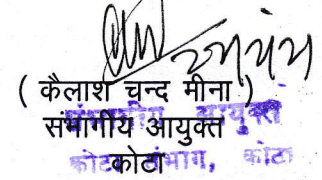 ( कैलाश चन्द मीना )
संभागीय आयुक्त
संभागीय आयुक्त
कोटा
कोटा संभाग, कोटा